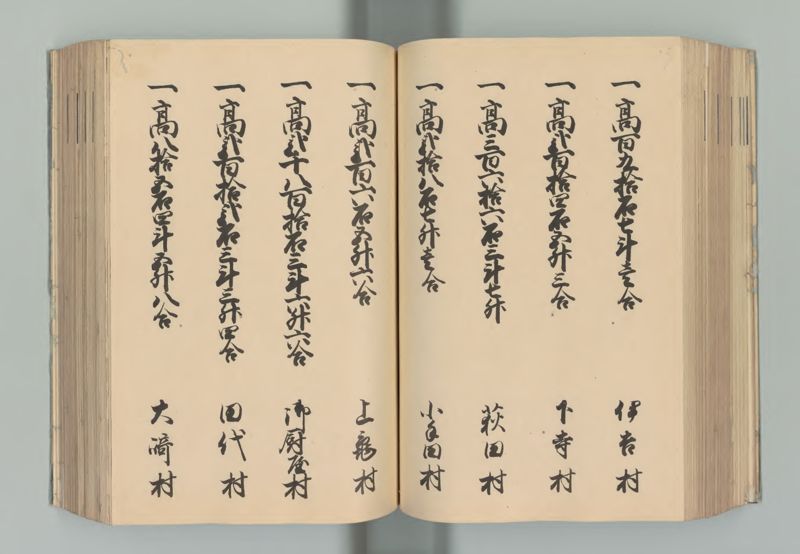 一高百九拾石七斗壱合 伊吉村
一高弐百拾四石五升三合 下寺村
一高三百六拾六石三斗七升 萩田村
一高弐拾八石七升壱合 小手田村
一高弐百六石五升六合 上 村
一高弐千八百拾石三斗六升六合 御厨屋村
一高弐百拾弐石三斗三升四合 田代村
一高八拾五石四斗五升八合 大﨑村